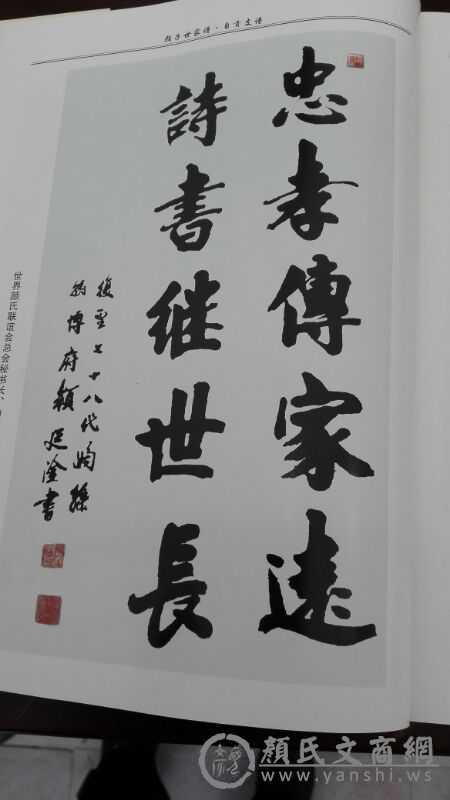 颜子世家谱·自贡支谱
忠孝傳家遠
詩書继世長
復聖七十八代嫡孫
翰博府顏廷淦書
世界颜氏联谊会总会秘书长、
顏氏文商網
www.yanshi.ws